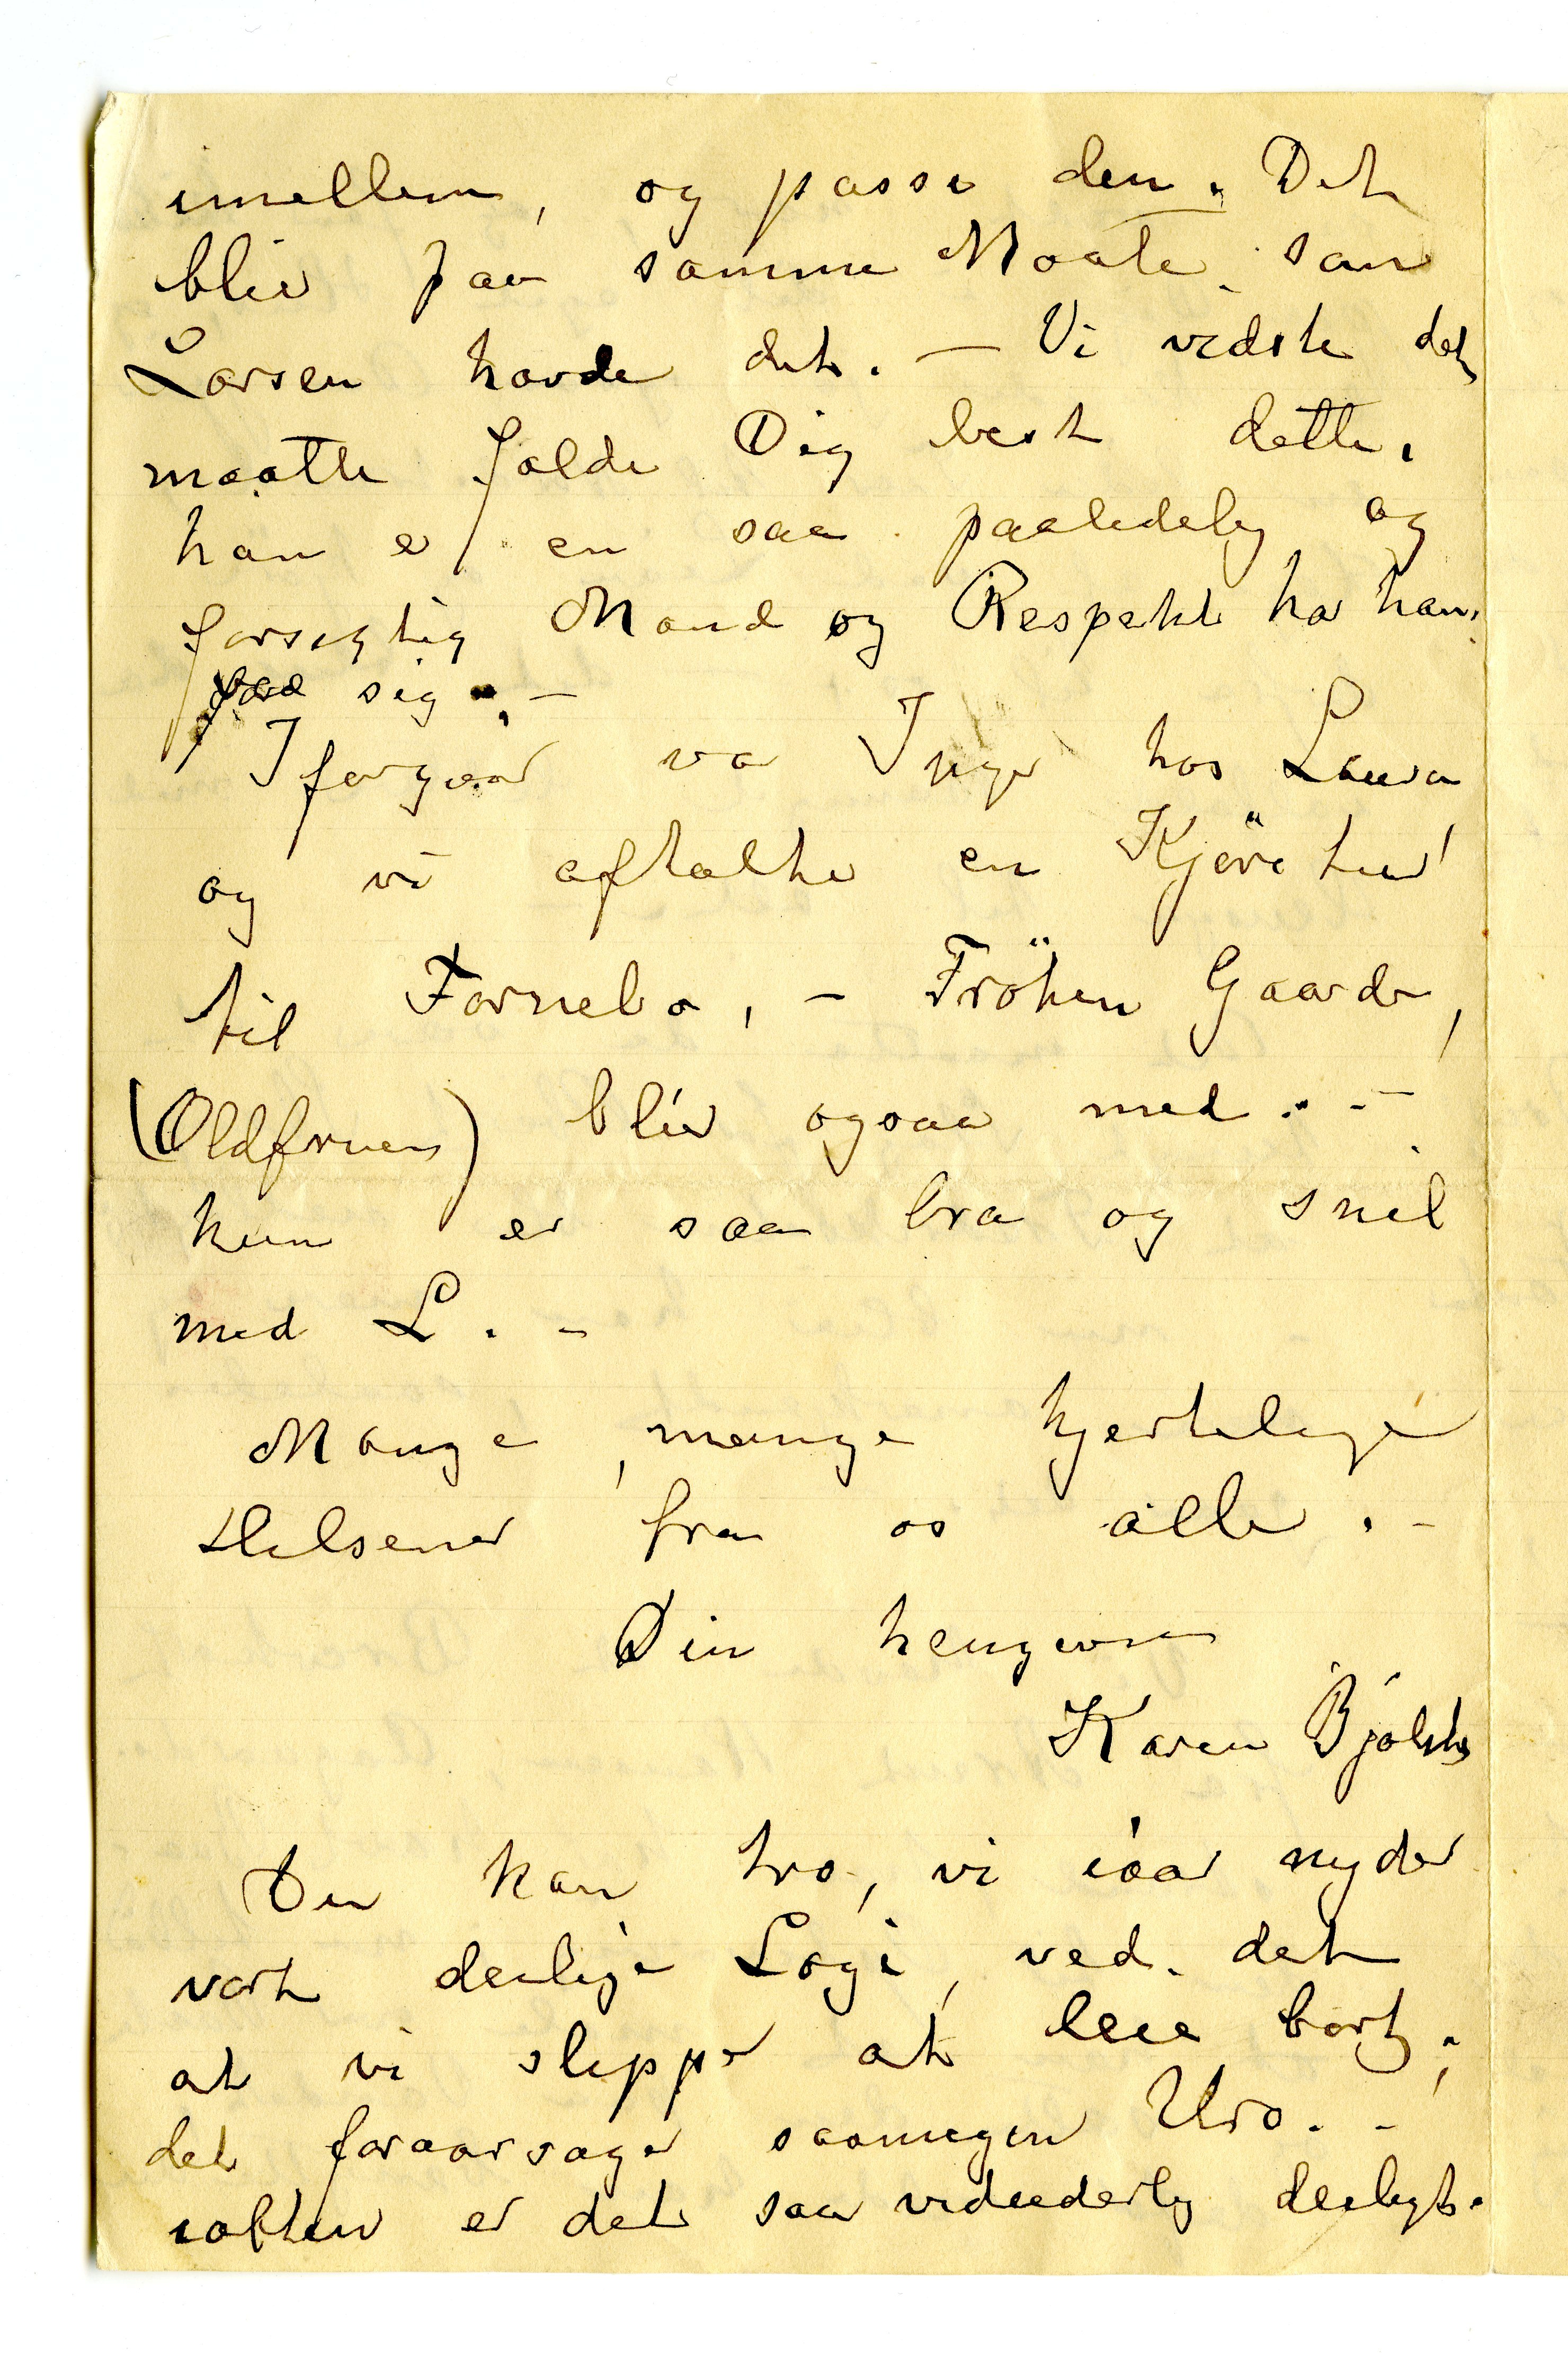 imellem, og passe den. Det
blir paa samme Maate som
Larsen havde det. – Vi vidste det
maatte falde Dig best dette,
han er en saa paalidelig og
forsigtig Mand og Respekt har han
sig. –
Iforgaar var Inger hos Laura
og vi aftalte en Kjöretur
til Fornebo, – Fröken Gaarder,
(Oldfruen) blir ogsaa med. –
hun er saa bra og snil
med L. –
Mange, mange hjertelige
Hilsener fra os alle. –
Din hengivne
Karen Bjølstad
Du kan tro, vi iaar nyder
vort deilige Logi, ved det
at vi slipper at leie bort;
det foraarsager saamegen Uro. –
iaften er det saa vidunderlig deiligt.